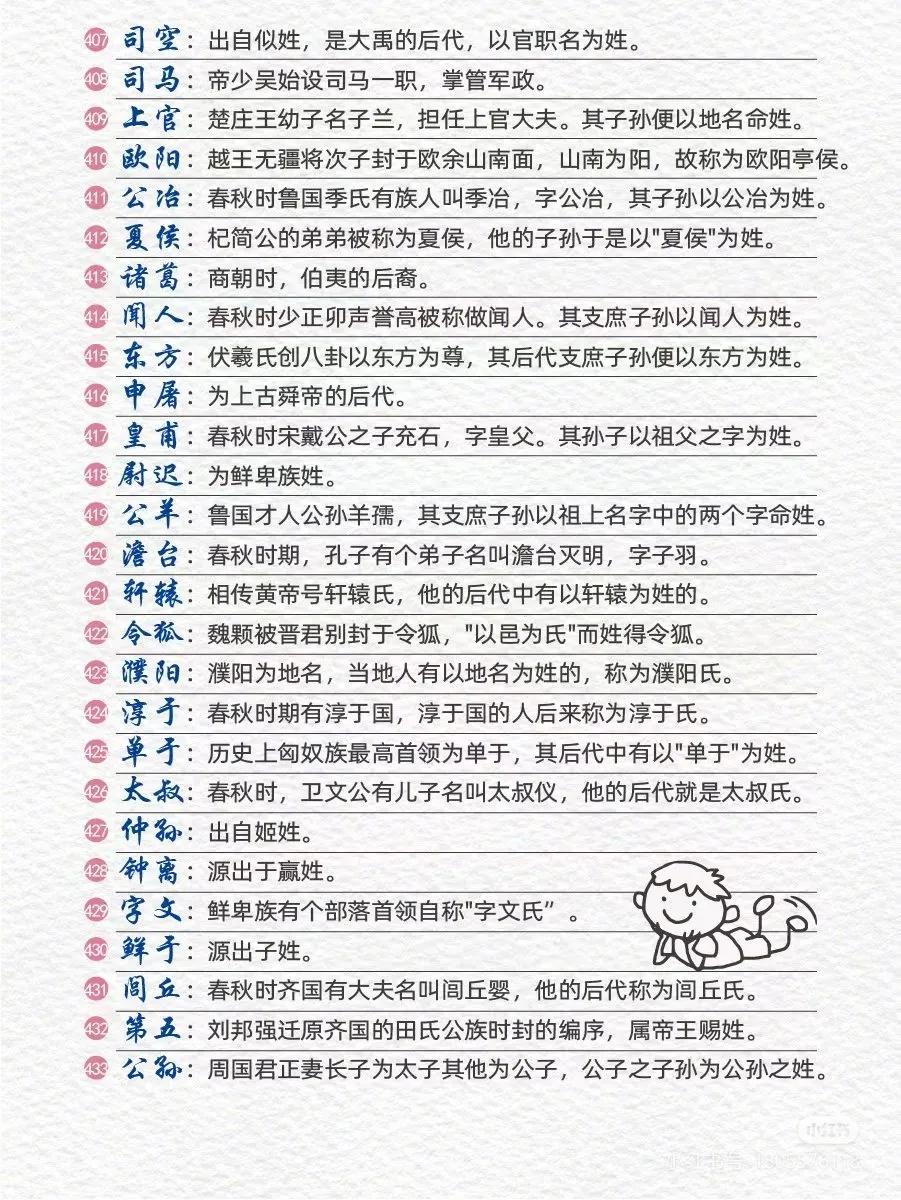 407 司空：出自似姓，是大禹的后代，以官职名为姓。
408 司马：帝少吴始设司马一职，掌管军政。
409 上官：楚庄王幼子名子兰，担任上官大夫。其子孙便以地名命姓。
410 欧阳：越王无疆将次子封于欧余山南面，山南为阳，故称为欧阳亭侯。
411 公冶：春秋时鲁国季氏有族人叫季冶，字公冶，其子孙以公冶为姓。
412 夏侯：杞简公的弟弟被称为夏侯，他的子孙于是以"夏侯"为姓。
413 诸葛：商朝时，伯夷的后裔。
414 闻人：春秋时少正卯声誉高被称做闻人。其支庶子孙以闻人为姓。
415 东方：伏羲氏创八卦以东方为尊，其后代支庶子孙便以东方为姓。
416 申屠：为上古舜帝的后代。
417 皇甫：春秋时宋戴公之子充石，字皇父。其孙子以祖父之字为姓。
418 尉迟：为鲜卑族姓。
419 公羊：鲁国才人公孙羊孺，其支庶子孙以祖上名字中的两个字命姓。
420 澹台：春秋时期，孔子有个弟子名叫澹台灭明，字子羽。
421 轩辕：相传黄帝号轩辕氏，他的后代中有以轩辕为姓的。
422 令狐：魏颗被晋君别封于令狐，"以邑为氏"而姓得令狐。
423 濮阳：濮阳为地名，当地人有以地名为姓的，称为濮阳氏。
424 淳于：春秋时期有淳于国，淳于国的人后来称为淳于氏。
425 单于：历史上匈奴族最高首领为单于，其后代中有以"单于"为姓。
426 太叔：春秋时，卫文公有儿子名叫太叔仪，他的后代就是太叔氏。
427 仲孙：出自姬姓。
428 钟离：源出于赢姓。
429 字文：鲜卑族有个部落首领自称"字文氏” 。
430 鲜于：源出子姓。
431 闾丘：春秋时齐国有大夫名叫闾丘婴，他的后代称为闾丘氏。
432 第五：刘邦强迁原齐国的田氏公族时封的编序，属帝王赐姓。
433 公孙：周国君正妻长子为太子其他为公子，公子之子孙为公孙之姓。
小红书